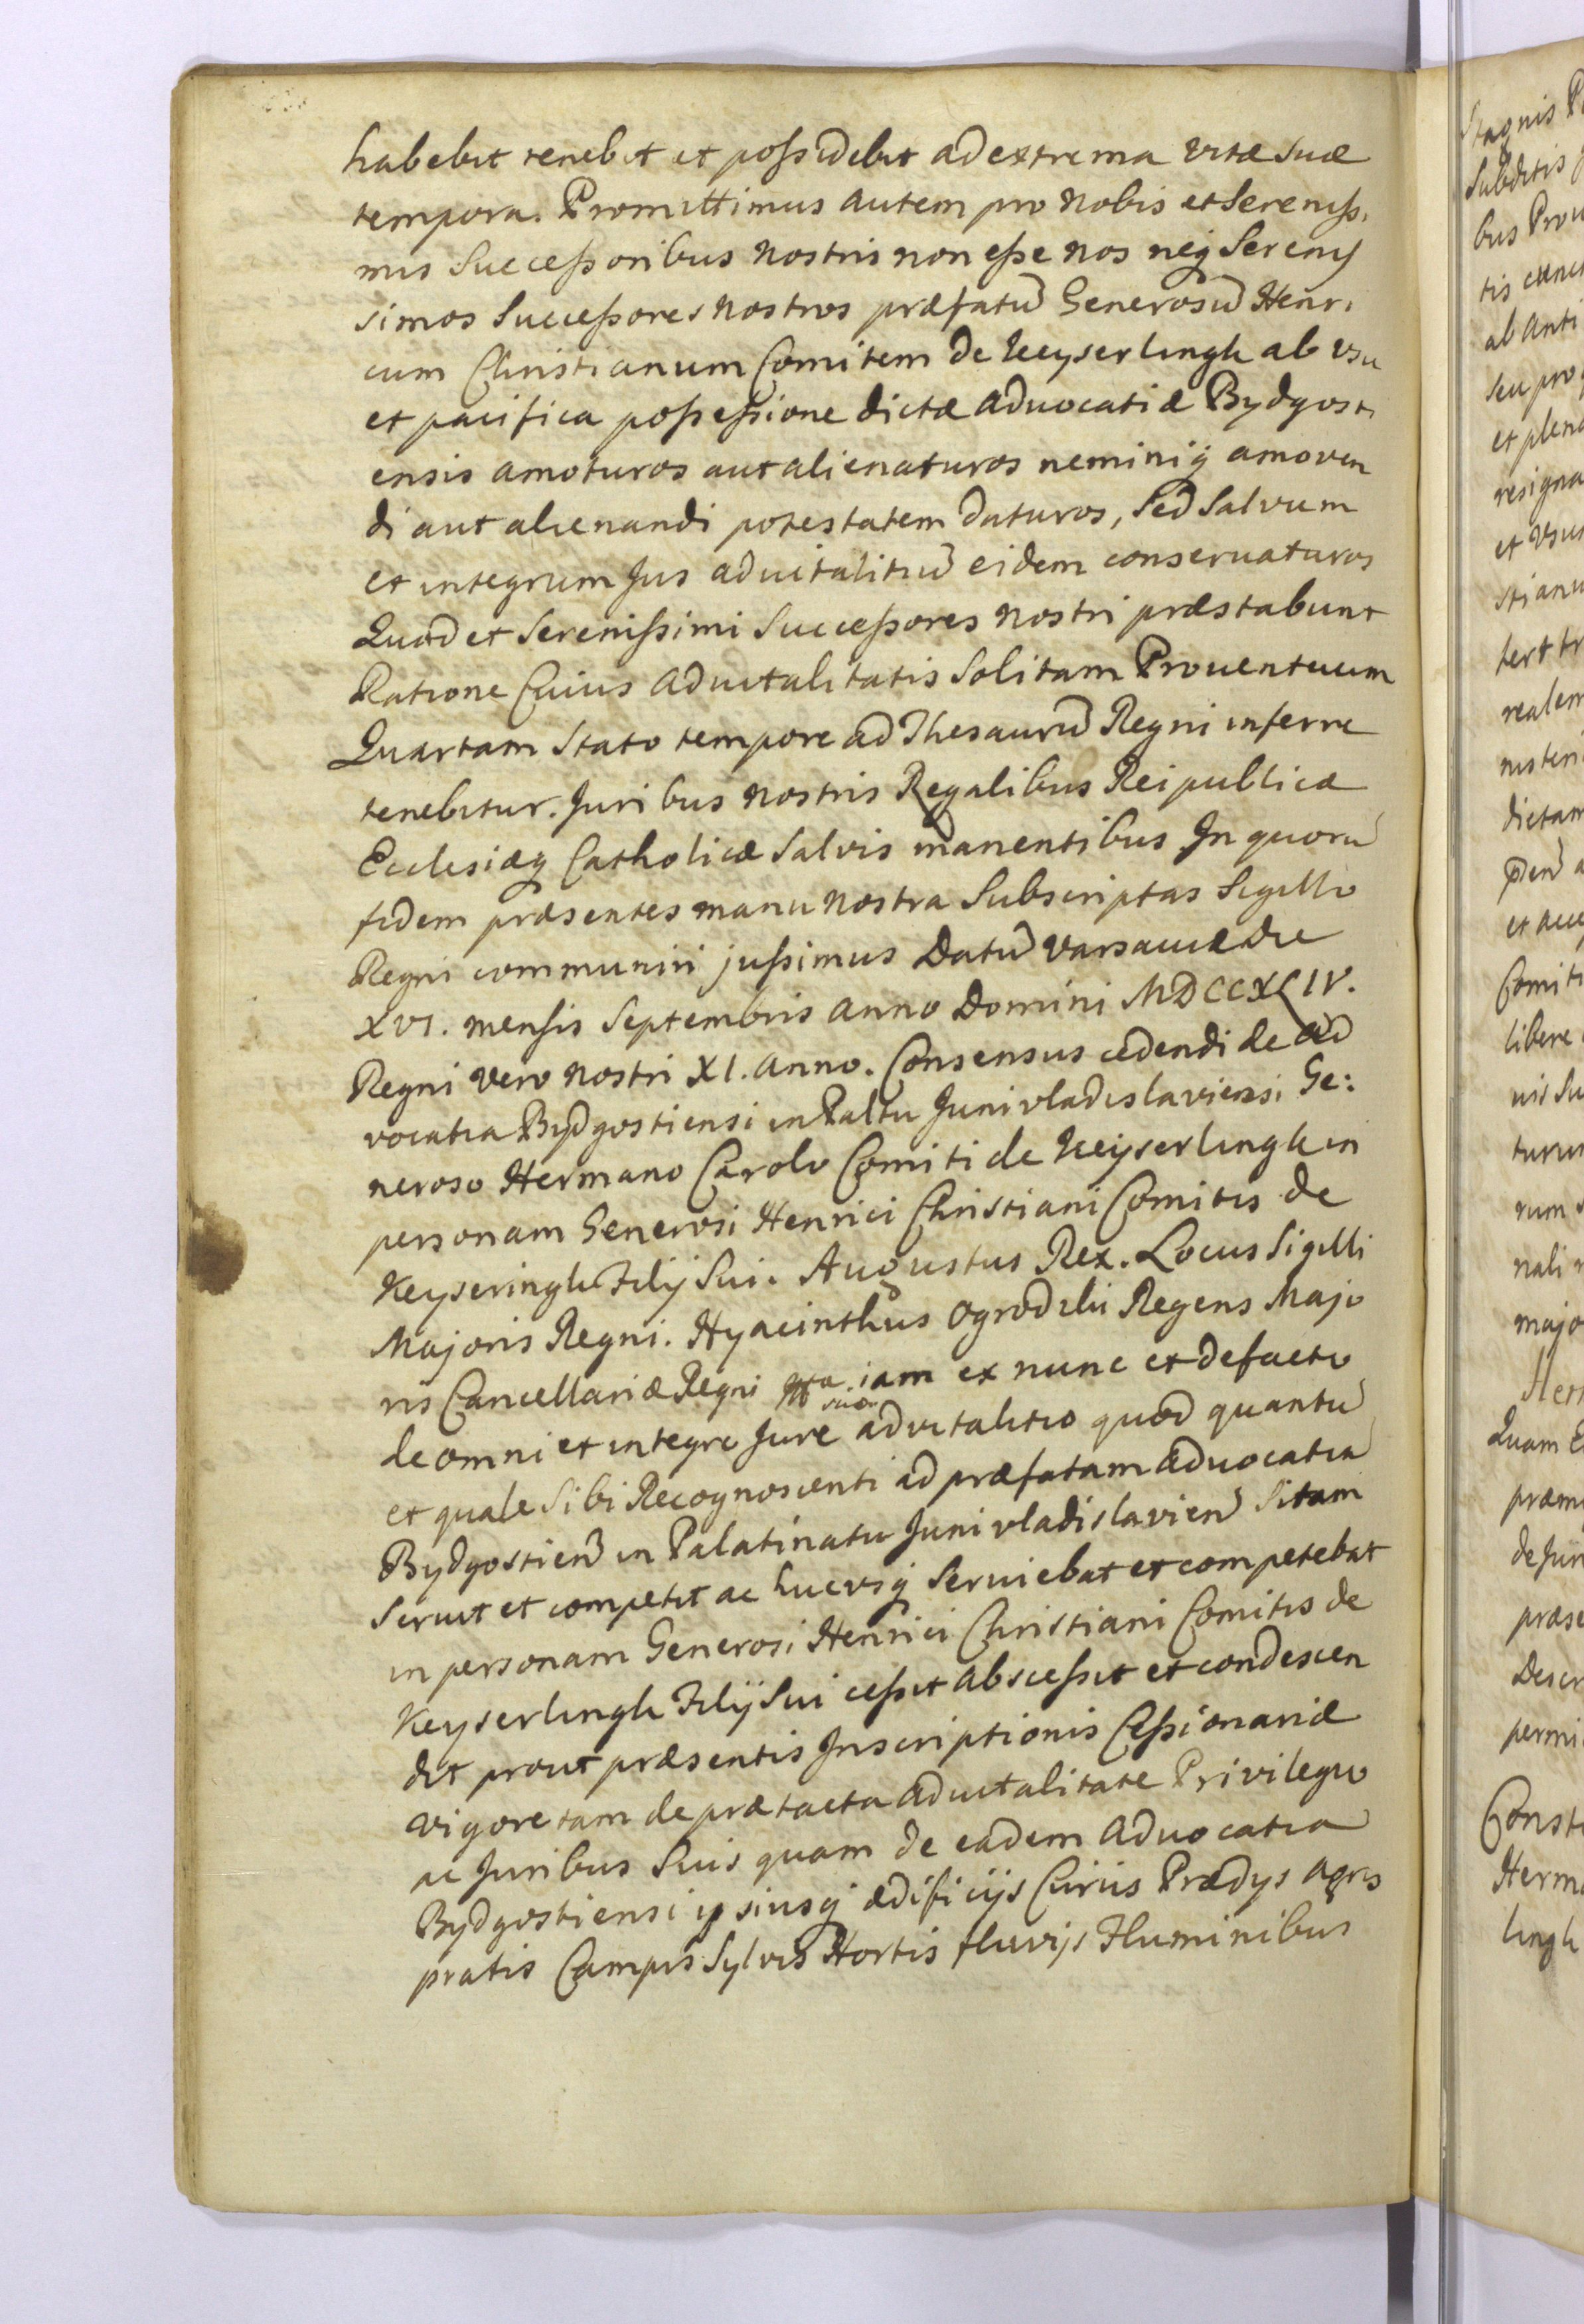 habebit tenebit et possidebit ad extrema vitæ suæ
tempora. Promittimus autem pro Nobis et Sereniss.
mis Successoribus Nostris non esse Nos neq Serenis
simos Successores Nostros præfatū Generosū Henri
cum Christianum Comitem de Keyserlingk ab Vsu
et pacifica possessione dictæ Advocatiæ Bydgosti
ensis amoturos aut alienaturos neminiq amoven
di aut alienandi potestatem daturos, sed Salvum
et integrum Jus advitalitiū eidem conservaturos
Quod et Serenissimi Successores Nostri præstabunt
Ratione Cuius Advitalitatis Solitam Proventuum
Quartam Stato tempore ad Thesaurū Regni inferre
tenebitur. Juribus Nostris Regalibus Reipublicæ
Ecclesiæq Catholicæ Salvis manentibus In quorū
fidem præsentes manu Nostra Subscriptas Sigillo
Regni communiri jussimus Datū Varsaviæ Die
XVI. mensis Septembris Anno Domini MDCCXLIV.
Regni vero Nostri XI. Anno. Consensus cedendi de Ad
vocatia Bydgostiensi in Paltu Junivladislaviensi Ge:
neroso Hermano Carolo Comiti de Keyserlingk in
personam Generosi Henrici Christiani Comitis de
Keyseringk Filij Sui. Augustus Rex. Locus Sigilli
Majoris Regni. Hyacinthus Ogrodzki Regens Majo
ris Cancellariæ Regni iam ex nunc et defacto
de omni et integro Jure suo advitalitio quod quantū
et quale Sibi Recognoscenti ad præfatam Advocatiā
Bydgostień in Palatinatu Junivladislavień Sitam
servit et competit ac hucvsq Serviebat et competebat
in personam Generosi Henrici Christiani Comitis de
Keyserlingk Filij Sui cessit abscessit et condescen
dit prout præsentis Inscriptionis Cessionariæ
vigore tam de prætacta Advitalitate Privilegio
ac Juribus Suis quam de eadem Advocatia
Bydgostiensi ipsiusq ædificijs Curiis Prædys Agris
pratis Campis Sylvis Hortis fluvijs Fluminibus